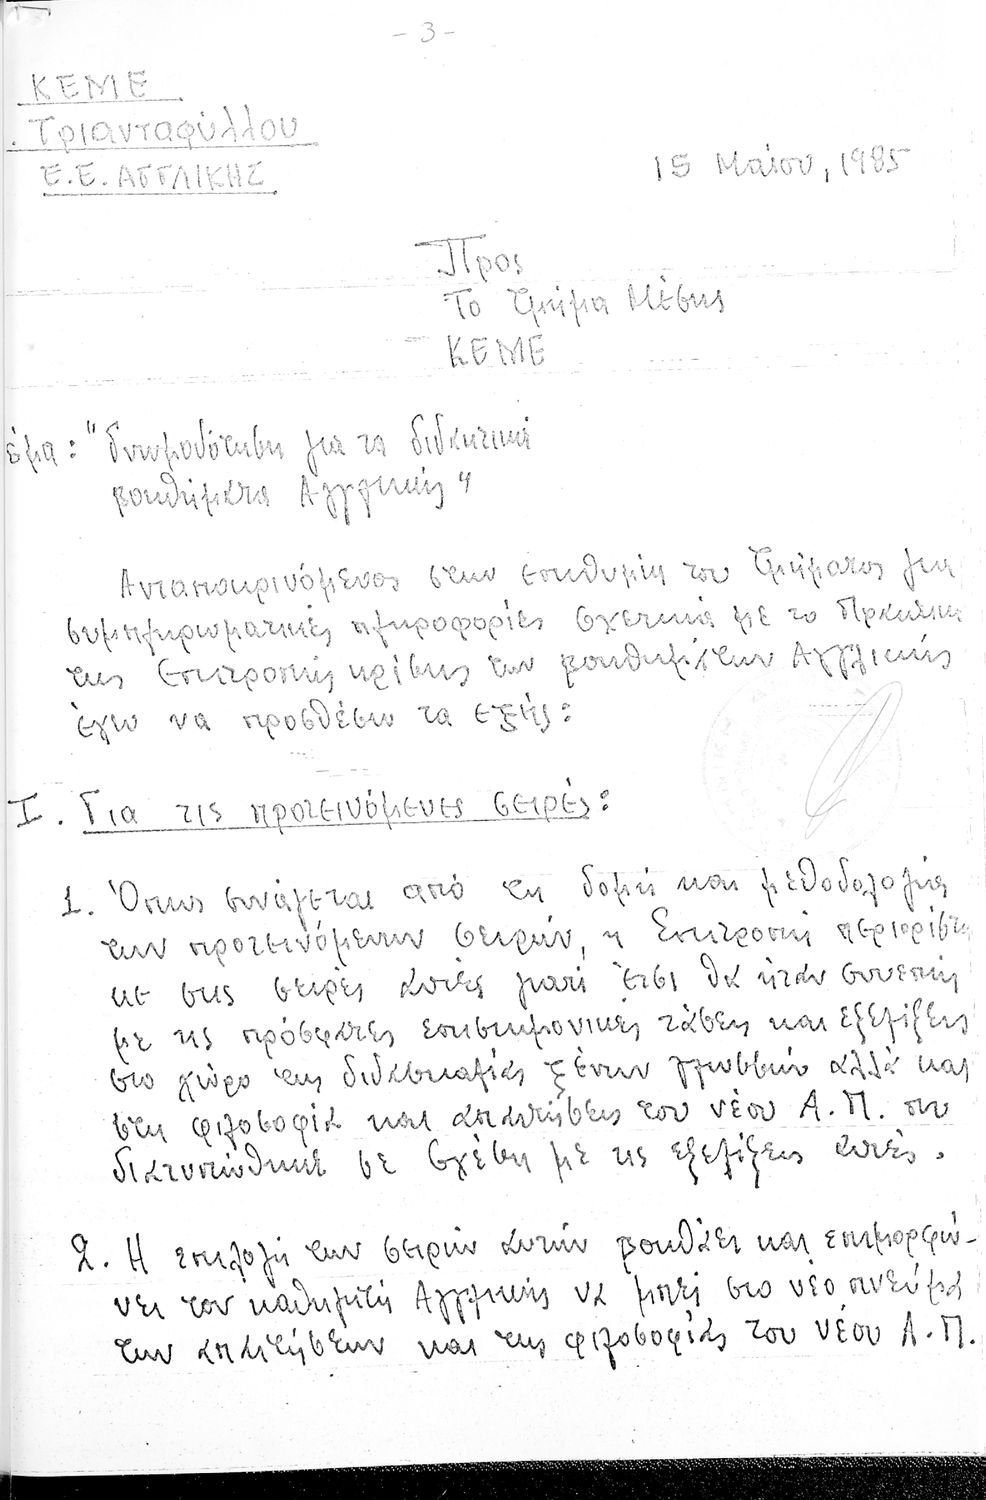 - 3 -
ΚΕΜΕ
. Τριανταφύλλου
Ε.Ε. ΑΓΓΛΙΚΗΣ
15 Μαΐου, 1985
Προς
Το Τμήμα Μέσης
ΚΕΜΕ
έμα: "Γνωμοδότηση για τα διδακτικά
βοηθήματα Αγγλικής"
Ανταποκρινόμενος στην επιθυμία του Τμήματος για
συμπληρωματικές πληροφορίες σχετικά με το Πρακτικό
της Επιτροπής κρίσης των βοηθημάτων Αγγλικής
έχω να προσθέσω τα εξής:
I. Για τις προτεινόμενες σειρές:
1. Όπως συνάγεται από τη δομή και μεθοδολογία
των προτεινόμενων σειρών, η Επιτροπή περιορίστη
κε στις σειρές αυτές γιατί έτσι θα ήταν συνεπής
με τις πρόσφατες επιστημονικές τάσεις και εξελίξεις
στο χώρο της διδασκαλίας ξένων γλωσσών αλλά και
στη φιλοσοφία και απαιτήσεις του νέου Α.Π. που
διατυπώθηκε σε σχέση με τις εξελίξεις αυτές.
2. Η επιλογή των σειρών αυτών βοηθάει και επιμορφώ-
νει τον καθηγητή Αγγλικής να μπει στο νέο πνεύμα
των απαιτήσεων και της φιλοσοφίας του νέου Α.Π.